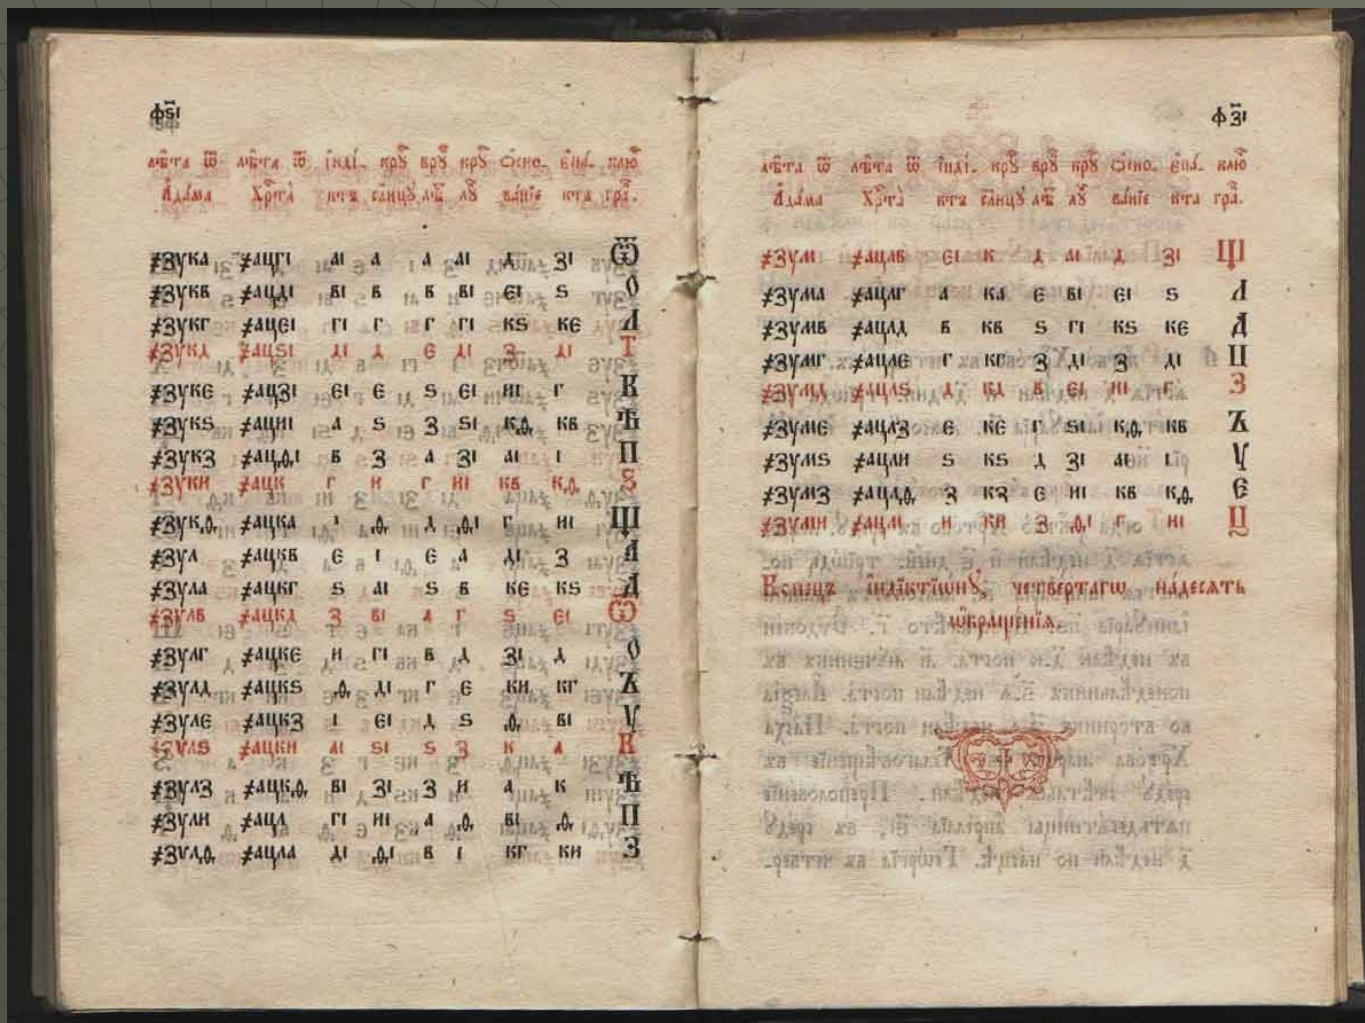 фѕ҃і
лѣта ѿ лѣта ѿ і҆ндї- крꙋ врꙋ крꙋ ѻ҆сно- є҆па- клю
А҆да́ма Хрⷭ҇та̀ ктъ сл҃нцꙋ лѣ лꙋ ва́нїе кта гра.
҂зука ҂ацгі аі а а аі д зі Ѿ
҂зукв ҂ацді ві в в ві еі ѕ О
҂зукг ҂ацеі гі г г гі кѕ ке Л
҂зукд ҂ацѕі ді д е ді з ді Т
҂зуке ҂ацзі еі е ѕ еі иі г К
҂зукѕ ҂ациі а ѕ з ѕі кѳ кв Ѣ
҂зукз ҂ацѳі в з а зі аі і П
҂зуки ҂ацк г и г иі кв кѳ Ѕ
҂зукѳ ҂ацка д ѳ д ѳі г иі Щ
҂зул ҂ацкв е і е а ді з Л
҂зула ҂ацкг ѕ аі ѕ в ке кѕ Д
҂зулв ҂ацкд з ві а г ѕ еі Ѿ
҂зулг ҂ацке и гі в д зі д О
҂зулд ҂ацкѕ ѳ ді г е ки кг Ъ
҂зуле ҂ацкз і еі д ѕ ѳ ві Ꙋ
҂зулѕ ҂ацки аі ѕі ѕ з к а К
҂зулз ҂ацкѳ ві зі з и а к Ѣ
҂зули ҂ацл гі иі а ѳ ві ѳ П
҂зулѳ ҂ацла ді ѳі в і кг ки З
фз҃і
лѣта ѿ лѣта ѿ і҆ндї- крꙋ врꙋ крꙋ ѻ҆сно- є҆па- клю
А҆да́ма Хрⷭ҇та̀ ктъ сл҃нцꙋ лѣ лꙋ ва́нїе кта гра.
҂зум ҂ацлв еі к д аі д зі Щ
҂зума ҂ацлг а ка е ві еі ѕ Л
҂зумв ҂ацлд в кв ѕ гі кѕ ке Д
҂зумг ҂ацле г кг з ді з ді П
҂зумд ҂ацлѕ д кд в еі иі г З
҂зуме ҂ацлз е ке г ѕі кѳ кв Ъ
҂зумѕ ҂ацли ѕ кѕ д зі аі і Ч
҂зумз ҂ацлѳ з кз е иі кв кѳ Е
҂зуми ҂ацм и ки з ѳі г иі Ц
Коне́цъ і҆ндїктїѡ́нꙋ, четве́ртагѡ на́десять
ѡ҆браще́нїѧ.